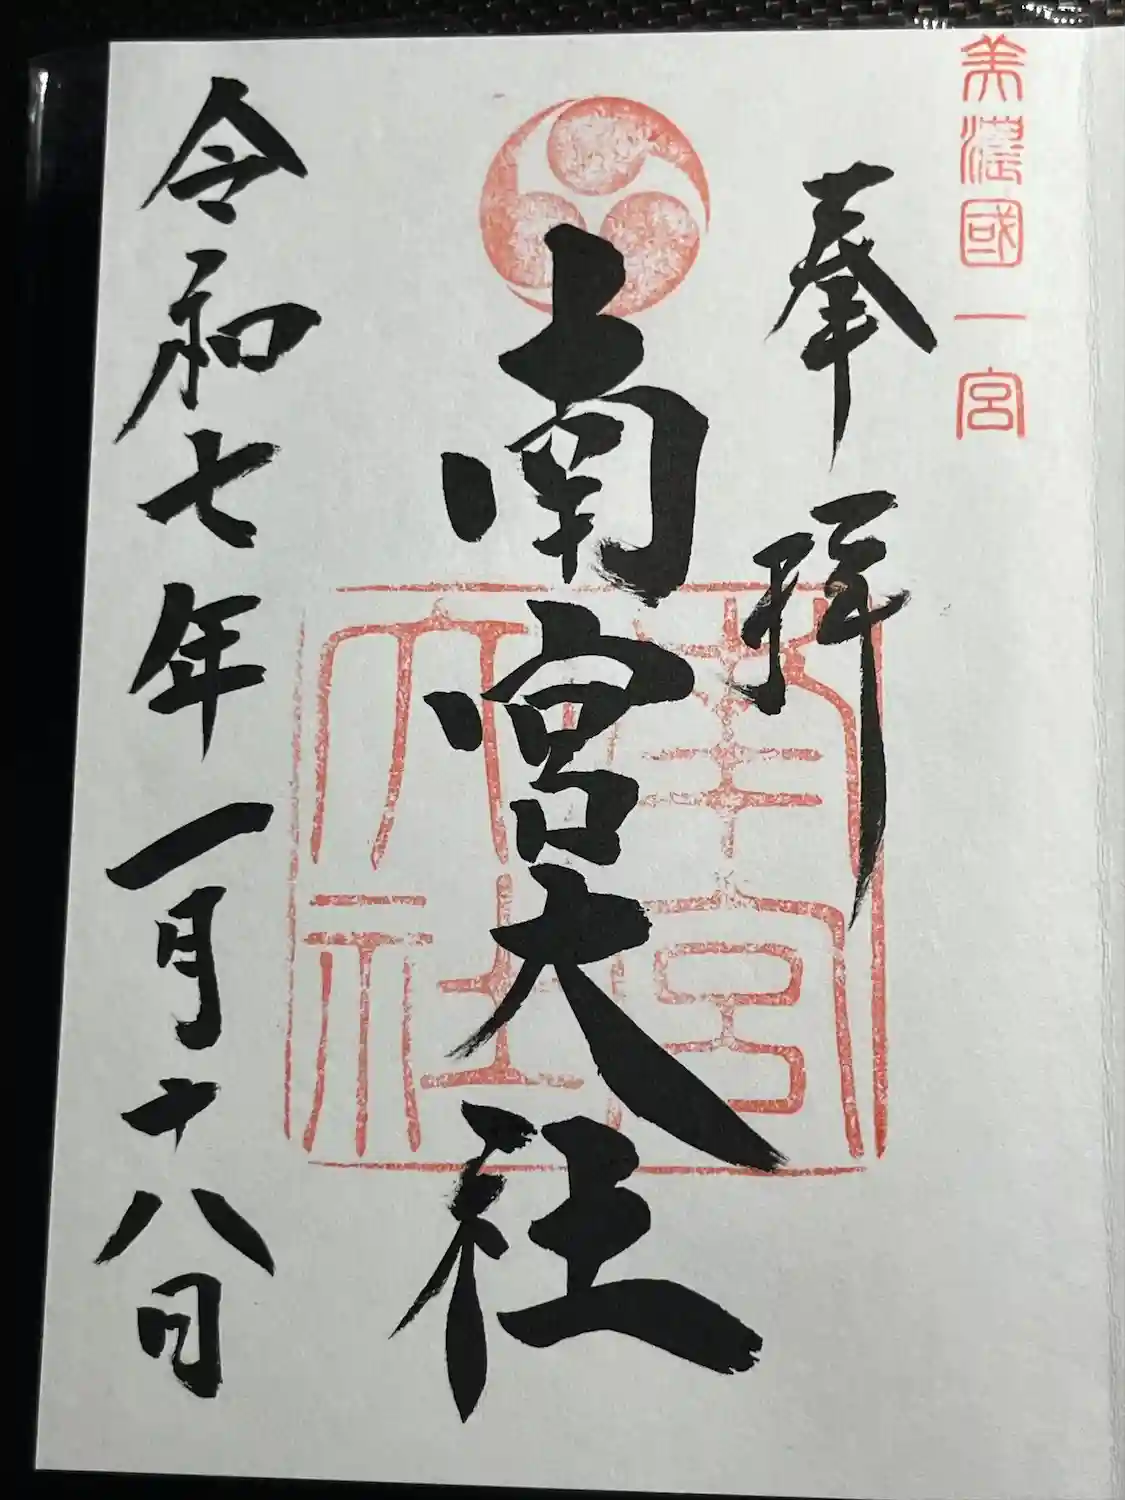 美濃國一宮
奉拝
南宮大社
南宮大社
令和七年一月十八日